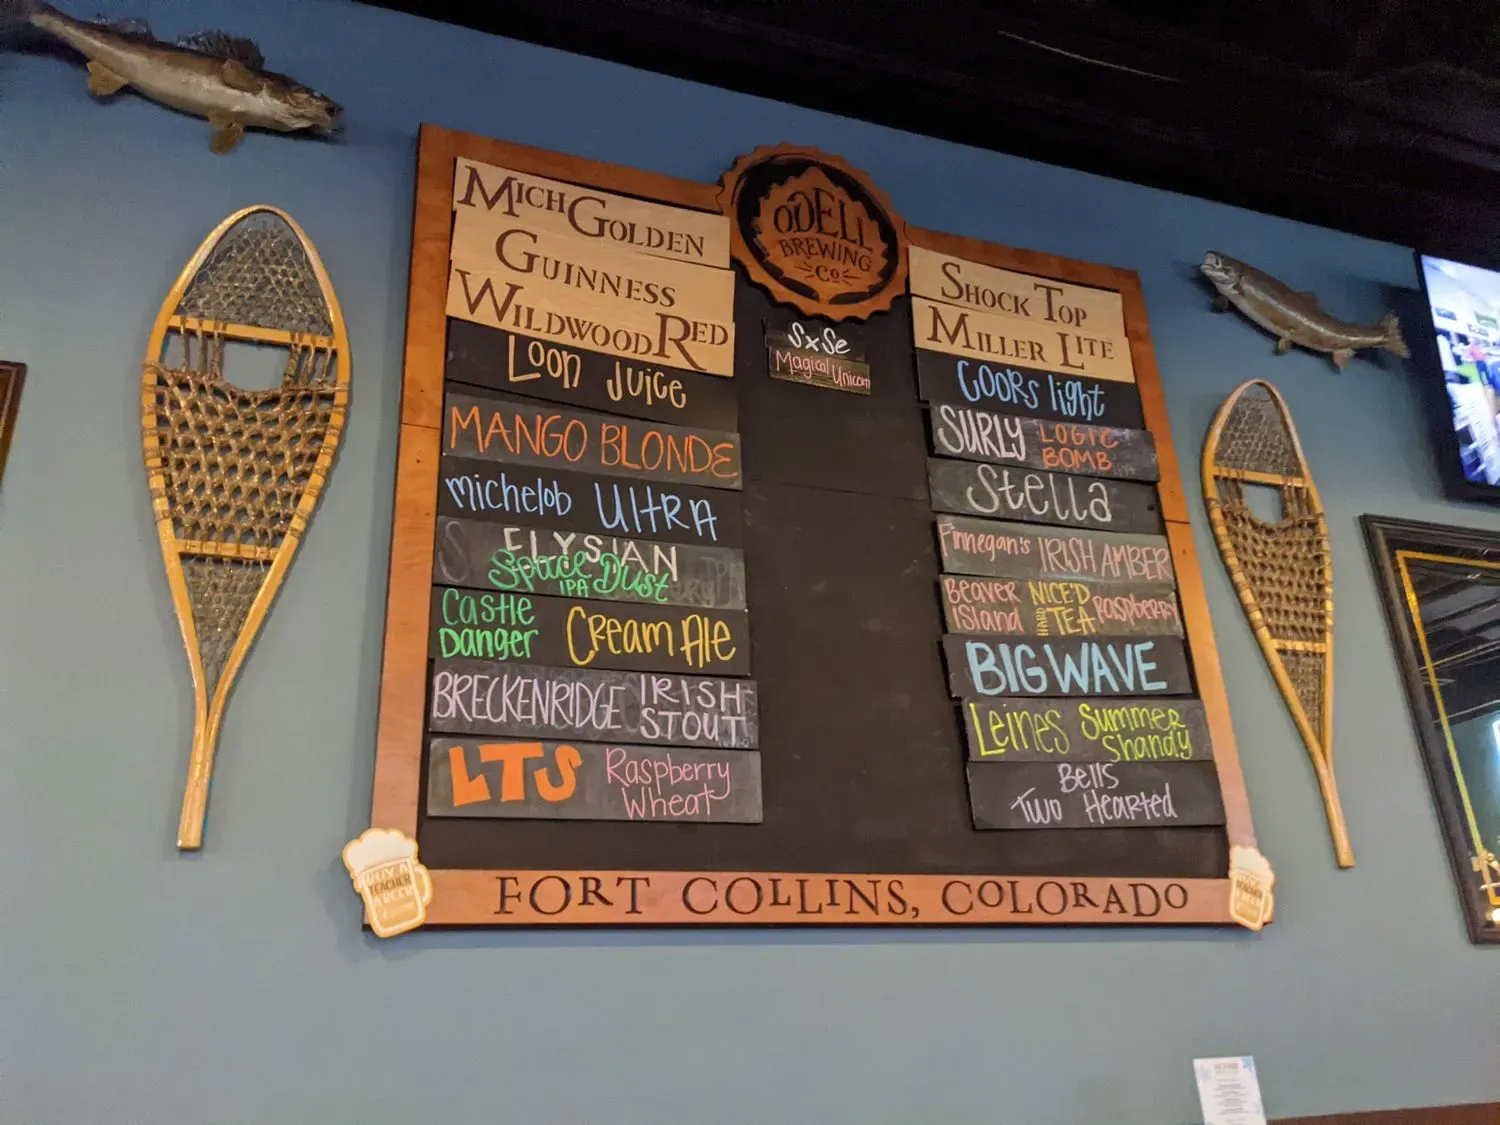 MICH GOLDEN
GUINNESS
WILDWOOD RED
LOON JUICE
MANGO BLONDE
michelob ULTRA
ELYSIAN
Space Dust
IPA
Castle
Danger
CREAM Ale
BRECKENRIDGE
IRISH
STOUT
LTS
Raspberry
Wheat
ODELL
BREWING
CO
SxSe
Magical Unicorn
SHOCK TOP
MILLER LITE
COORS light
SURLY
LOGIC
BOMB
Stella
Finnegan's IRISH AMBER
Beaver
island
NICE'D
HARD
TEA
Raspberry
BIG WAVE
Leines
Summer
Shandy
Bells
Two Hearted
BUY A
TEACHER
A BEER
FORT COLLINS, COLORADO